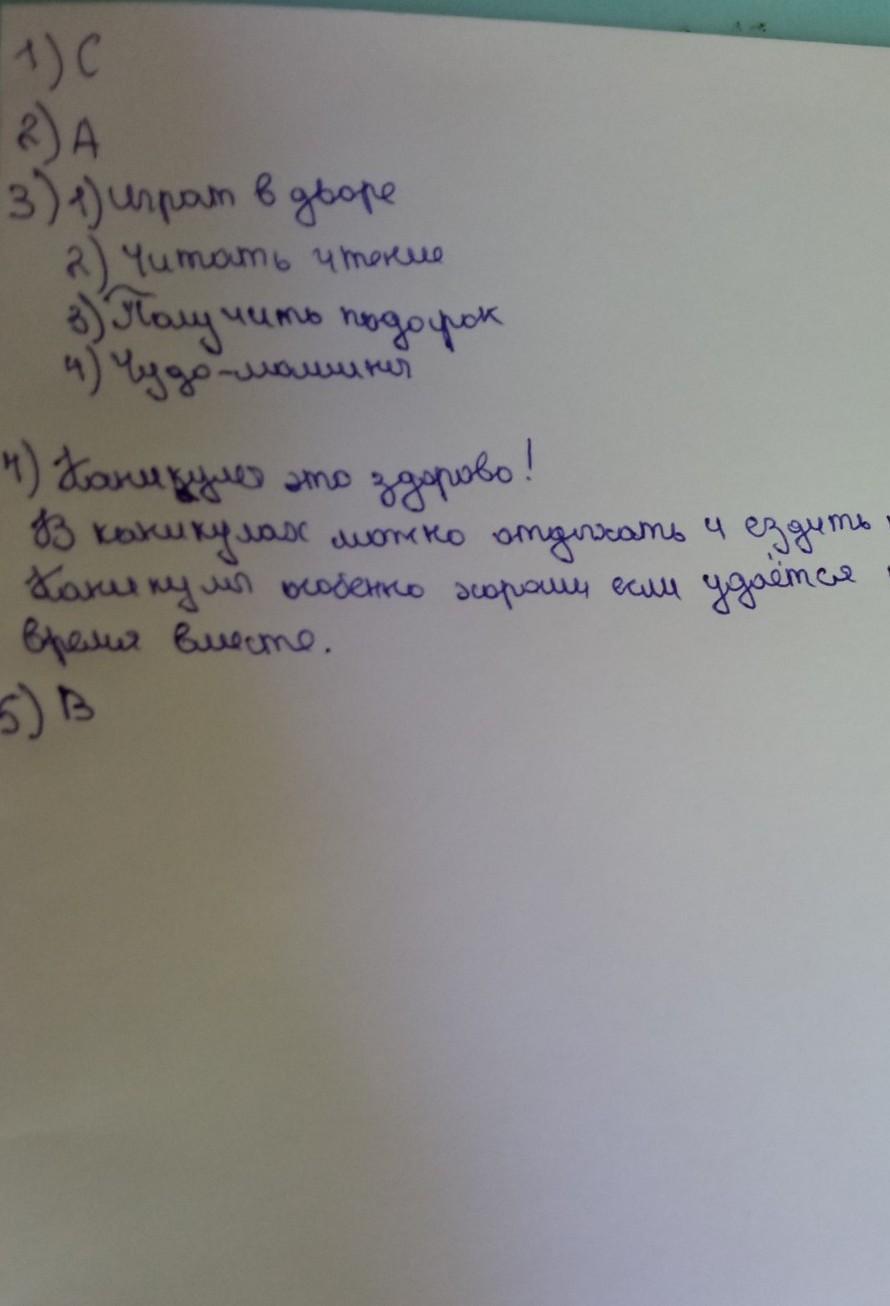 1) С
2) А
3) 1) Играт в дворе
2) Читать чтение
3) Получить подорок
4) Чудо-машины
4) Каникулы это здорово!
В каникулах можно отдыхать и ездить
Каникулы особенно хороши если удаётся
время вместе.
5) В